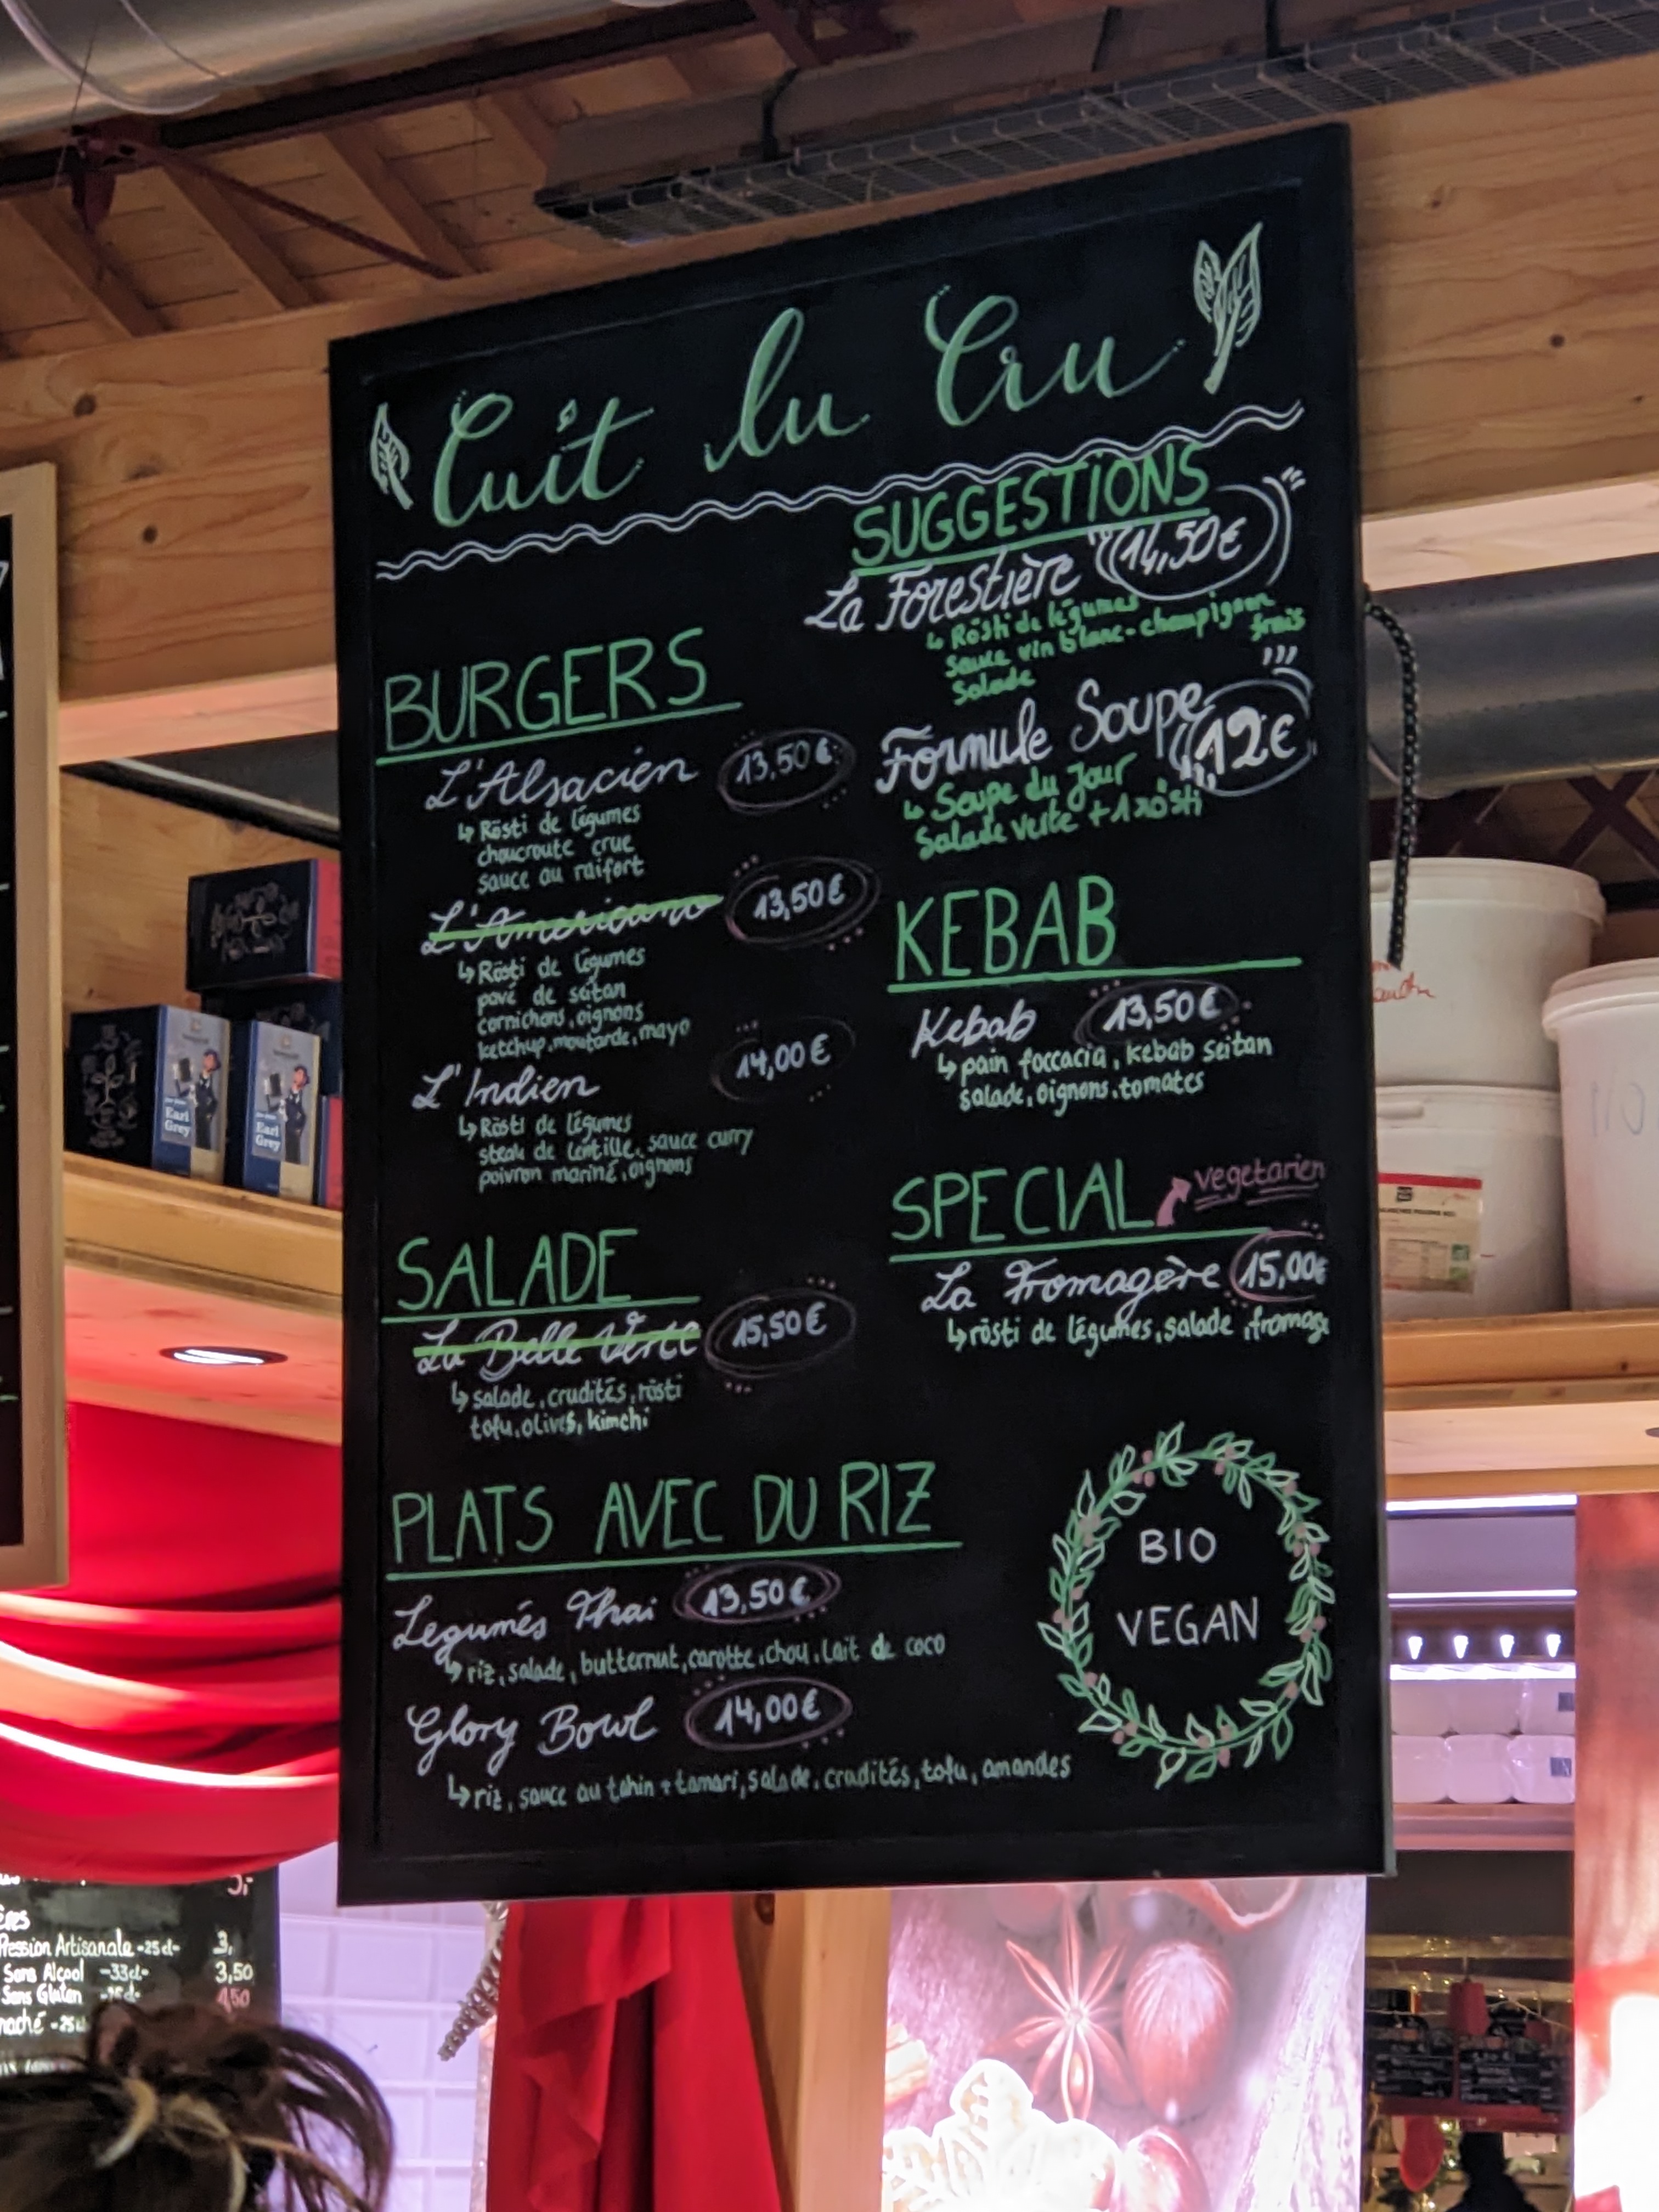 Cuit lu Cru
SUGGESTIONS
La Forestière 14,50€
↳ Rösti de légumes
sauce vin blanc-champignon
frais
Salade
Formule Soupe 12€
↳ Soupe du Jour
Salade verte + 1 rösti
BURGERS
L'Alsacien 13,50€
↳ Rösti de légumes
choucroute crue
sauce au raifort
L'Americano 13,50€
↳ Rösti de légumes
pavé de seitan
cornichons, oignons
ketchup, moutarde, mayo
L'Indien 14,00€
↳ Rösti de légumes
steak de lentille, sauce curry
poivron mariné, oignons
SALADE
La Belle Verte 15,50€
↳ salade, crudités, rösti
tofu, olives, kimchi
KEBAB
Kebab 13,50€
↳ pain foccacia, kebab seitan
salade, oignons, tomates
SPECIAL vegetarien
La Fromagère 15,00€
↳ rösti de légumes, salade, fromag
PLATS AVEC DU RIZ
Legumés Thai 13,50€
↳ riz, salade, butternut, carotte, chou, lait de coco
Glory Bowl 14,00€
↳ riz, sauce au tahin + tamari, salade, crudités, tofu, amandes
BIO
VEGAN
Earl
Grey
Earl
Grey
Pression Artisanale -25cl- 3,
Sans Alcool -33cl- 3,50
Sans Gluten 4,50
naché -25cl